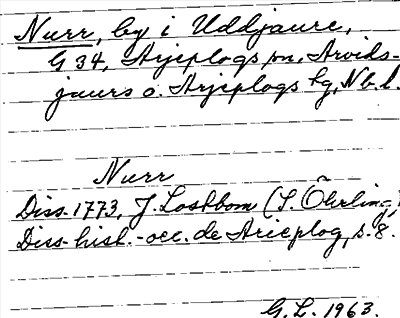 Nurr, by i Uddjaure,
G 34, Arjeplogs sn, Arvids-
jaurs o. Arjeplogs tg, Nb.l.
Nurr
Diss. 1773, J. Laskbom (S. Öhrling,
Diss. hist.-oec. de Arieplog, s. 8.
G. L. 1963.